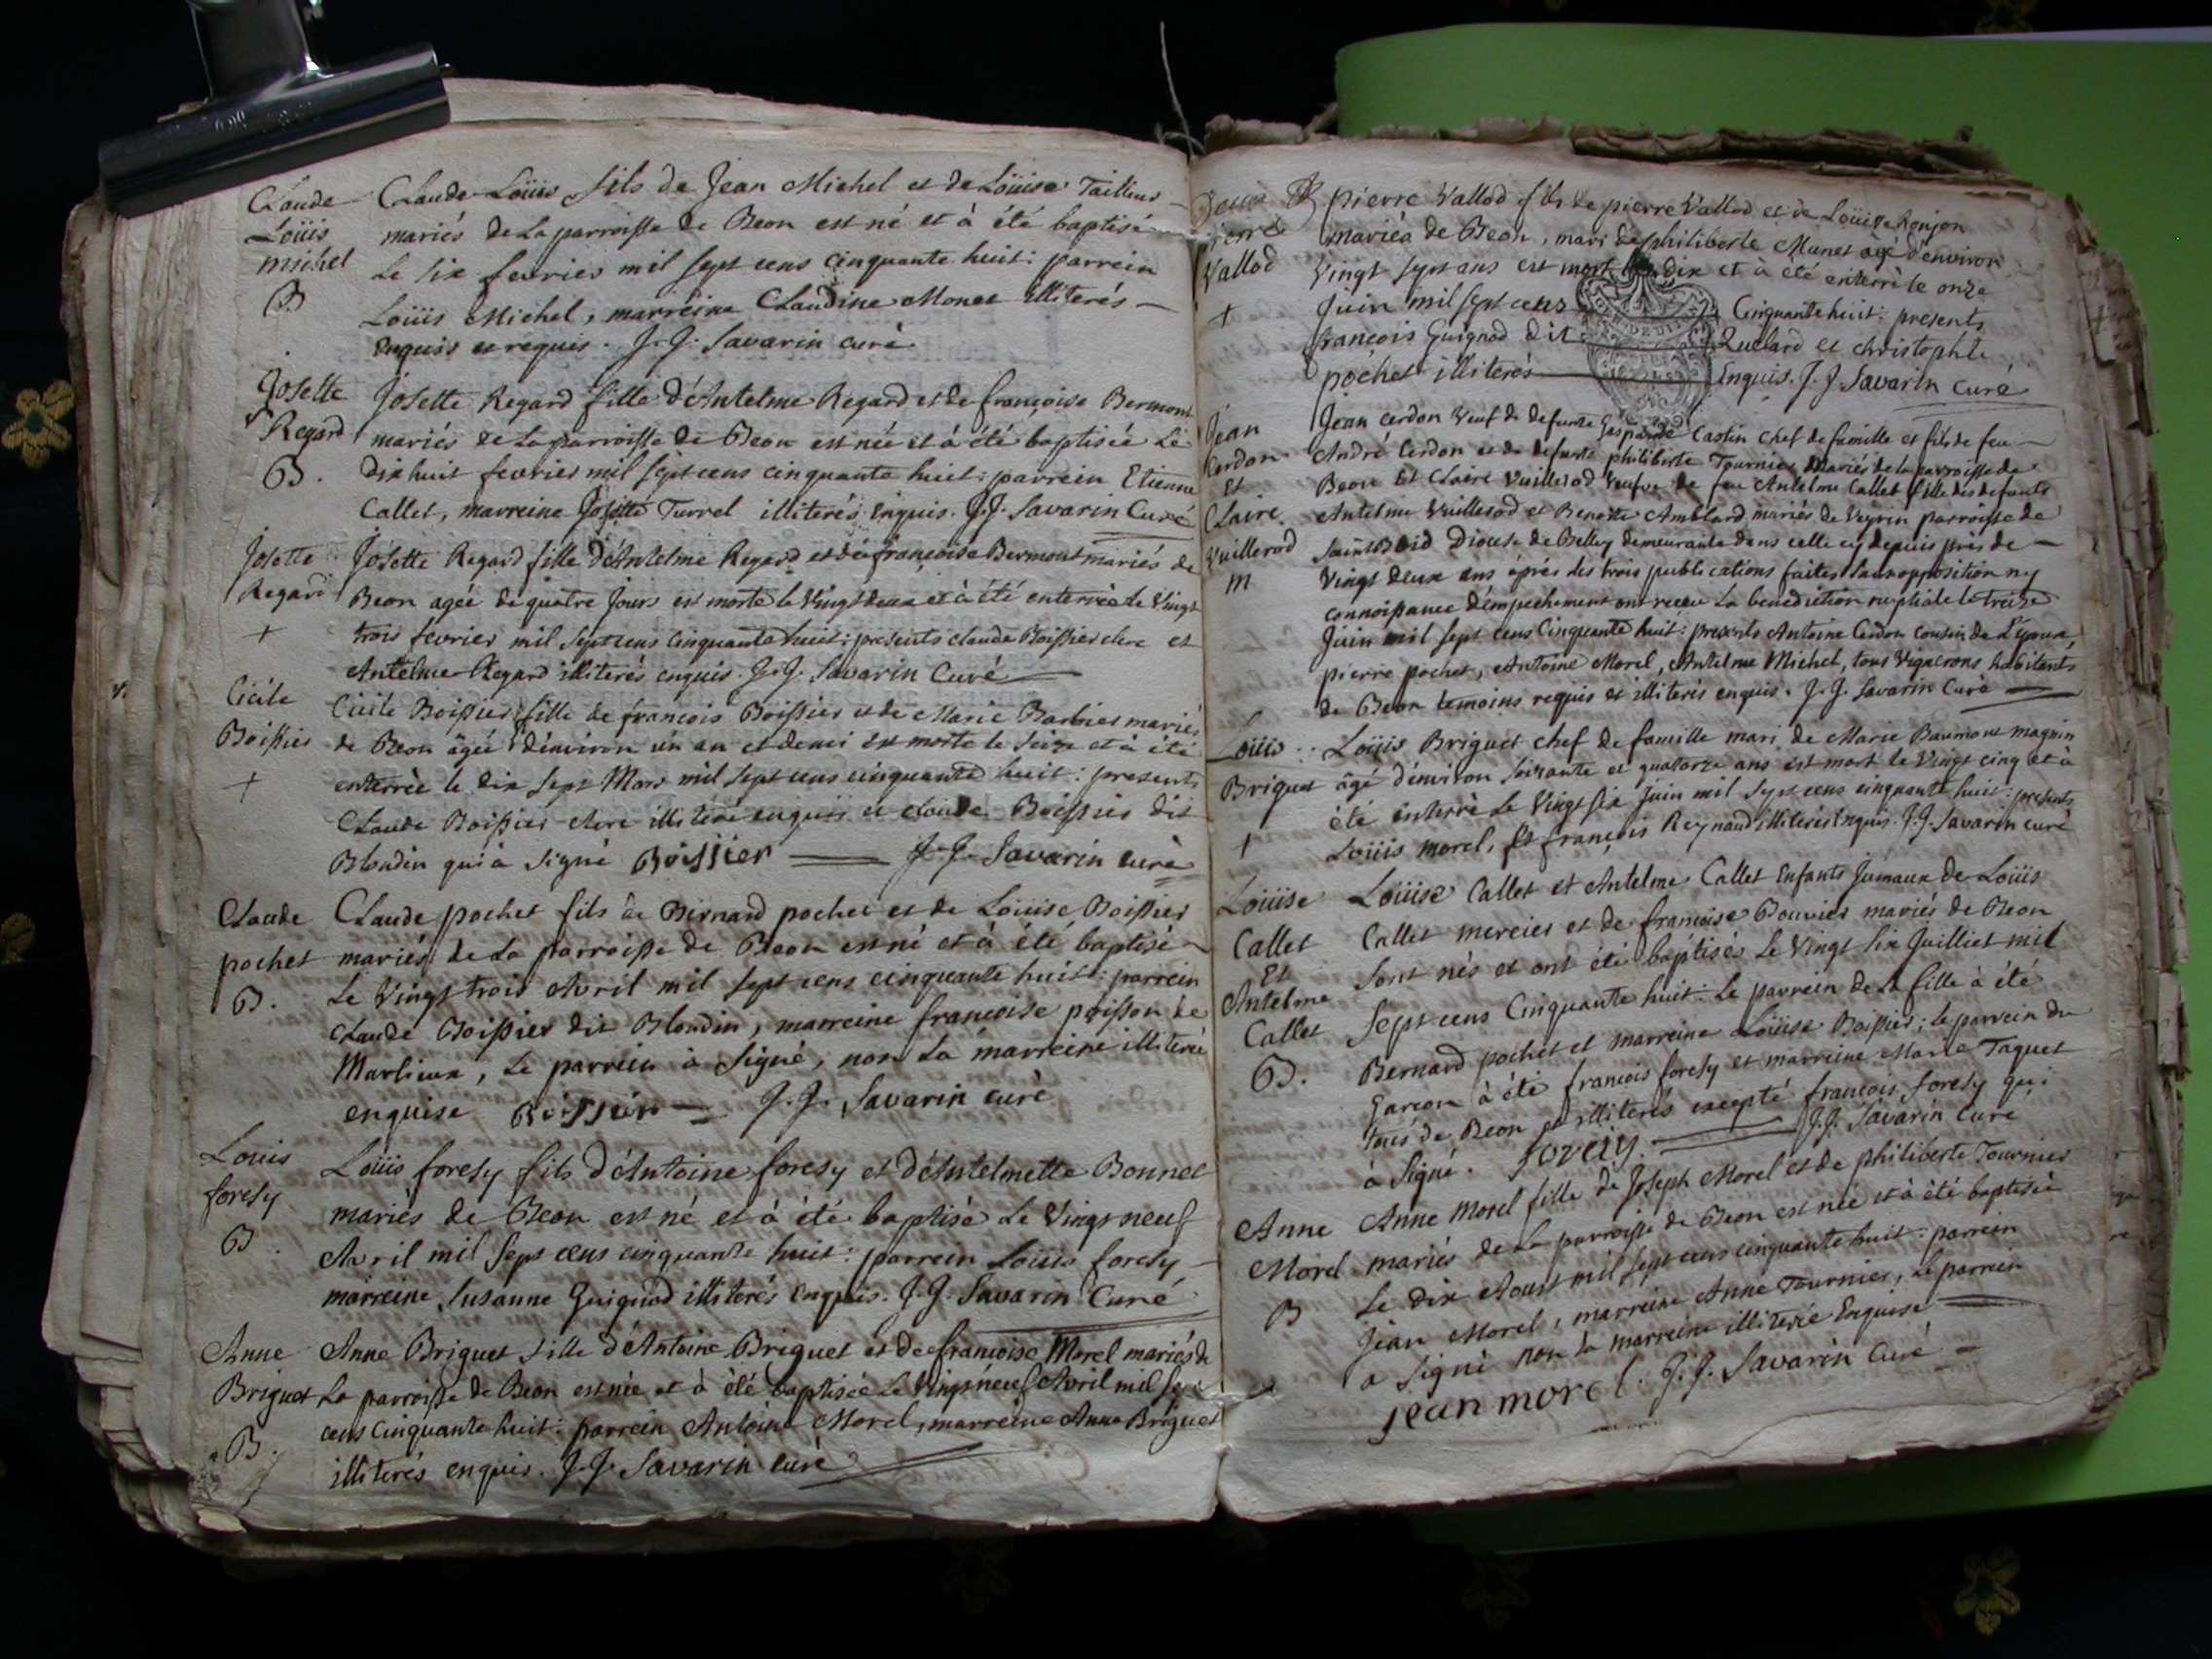 Claude Claude Loüis fils de Jean Michel et de Loüise Tailleur
Loüis mariés de la parroisse de Beon est né et à été baptisé
michel Le six fevrier mil sept cens cinquante huit: parrein
B Loüis Michel, marreine Claudine Monet illiterés
enquis et requis. J. J. Savarin curé
Josette Josette Regard fille d'Antelme Regard et de françoise Bermont
Regard mariés de la parroisse de Beon est née et à été baptisée Le
B. dix huit fevrier mil sept cens cinquante huit: parrein Etienne
Callet, marreine Josette Turrel illiterés enquis. J. J. Savarin Curé
Josette Josette Regard fille d'Antelme Regard et de françoise Bermont mariés de
Regard Beon agée de quatre jours est morte le Vingt deux et à été enterrée le Vingt
+ trois fevrier mil sept cens cinquante huit: presents claude Boissier clerc et
Antelme Regard illiterés enquis. J. J. Savarin Curé
Cicile Cicile Boissier fille de françois Boissier et de Marie Barbier mariés
Boissier de Beon âgée d'environ un an et demi est morte le seize et à été
+ enterrée le dix sept Mars mil sept cens cinquante huit: presents
Claude Boissier clerc illiteré enquis et claude Boissier dit
Blondin qui à signé Boissier J. J. Savarin curé
Claude Claude pochet fils de Bernard pochet et de Loüise Boissier
pochet mariés de La parroisse de Beon est né et à été baptisé
B. Le Vingt trois Avril mil sept cens cinquante huit: parrein
Claude Boissier dit Blondin, marreine françoise poisson de
Marlieux, Le parrein à signé, non La marreine illiterée
enquise Boissier J. J. Savarin curé
Louis Loüis foresy fils d'Antoine foresy et d'Antelmette Bonnet
foresy mariés de Beon est né et à été baptisé Le Vingt neuf
B Avril mil sept cens cinquante huit: parrein Louis foresy
marreine Susanne Guignod illiterés enquis. J. J. Savarin Curé
Anne Anne Briguet fille d'Antoine Briguet et de françoise Morel mariés de
Briguet La parroisse de Beon est née et à été baptisée Le Vingt neuf Avril mil sept
B. cens Cinquante huit: parrein Antoine Morel, marreine Anne Briguet
illiterés enquis. J. J. Savarin curé
pierre Vallod fils de pierre Vallod et de Loüise Ronjon
pierre mariés de Beon, mari de philiberte Munet agé d'environ
Vallod Vingt sept ans est mort le dix et à été enterré le onze
+ Juin mil sept cens Cinquante huit: presents
françois Guignod dit Quelard et christophle
pochet illiterés Enquis. J. J. Savarin Curé
Jean Jean Cerdon Veuf de defunte Gasparde Castin chef de famille et fils de feu
Cerdon André Cerdon et de defunte philiberte Tournier Mariés de la parroisse de
Et Beon Et Claire Vuillerod Veufve de feu Antelme Callet fille des defunts
Claire Antelme Vuillerod et Benoite Amblard mariés de Veyrin parroisse de
Vuillerod Diocese de Belley demeurante dans celle cy depuis près de
m Vingt deux ans après les trois publications faites sans opposition ny
connoissance d'empechement ont receu La benediction nuptiale le treize
Juin mil sept cens Cinquante huit: presents Antoine Cerdon cousin de L'epoux
pierre pochet, Antoine Morel, Antelme Michel, tous Vignerons habitants
de Beon temoins requis et illiterés enquis. J. J. Savarin Curé
Loüis Loüis Briguet chef de famille mari de Marie Baumont magnin
Briguet âgé d'environ soixante et quatorze ans est mort le Vingt cinq et à
été enterré Le Vingt six Juin mil sept cens cinquante huit: presents
+ Loüis morel, Et françois Reynaud illiterés enquis. J. J. Savarin curé
Loüise Loüise Callet et Antelme Callet Enfants Jumaux de Loüis
Callet Callet mercier et de françoise Bouvier mariés de Beon
Et Sont nés et ont été baptisés Le Vingt six Juilliet mil
Antelme Sept cens Cinquante huit: Le parrein de La fille à été
Callet Bernard pochet et marreine Loüise Boissier; le parrein du
B. Garçon à été françois foresy et marreine Marie Taquet
tous de Beon et illiterés excepté françois foresy qui
à signé. foresy. J. J. Savarin Curé
Anne Anne Morel fille de Joseph Morel et de philiberte Tournier
Morel mariés de La parroisse de Beon est née et à été baptisée
B Le dix Aoust mil sept cens cinquante huit: parrein
Jean Morel, marreine Anne Tournier, Le parrein
a signé non la marreine illiterée Enquise
jean morel. J. J. Savarin Curé